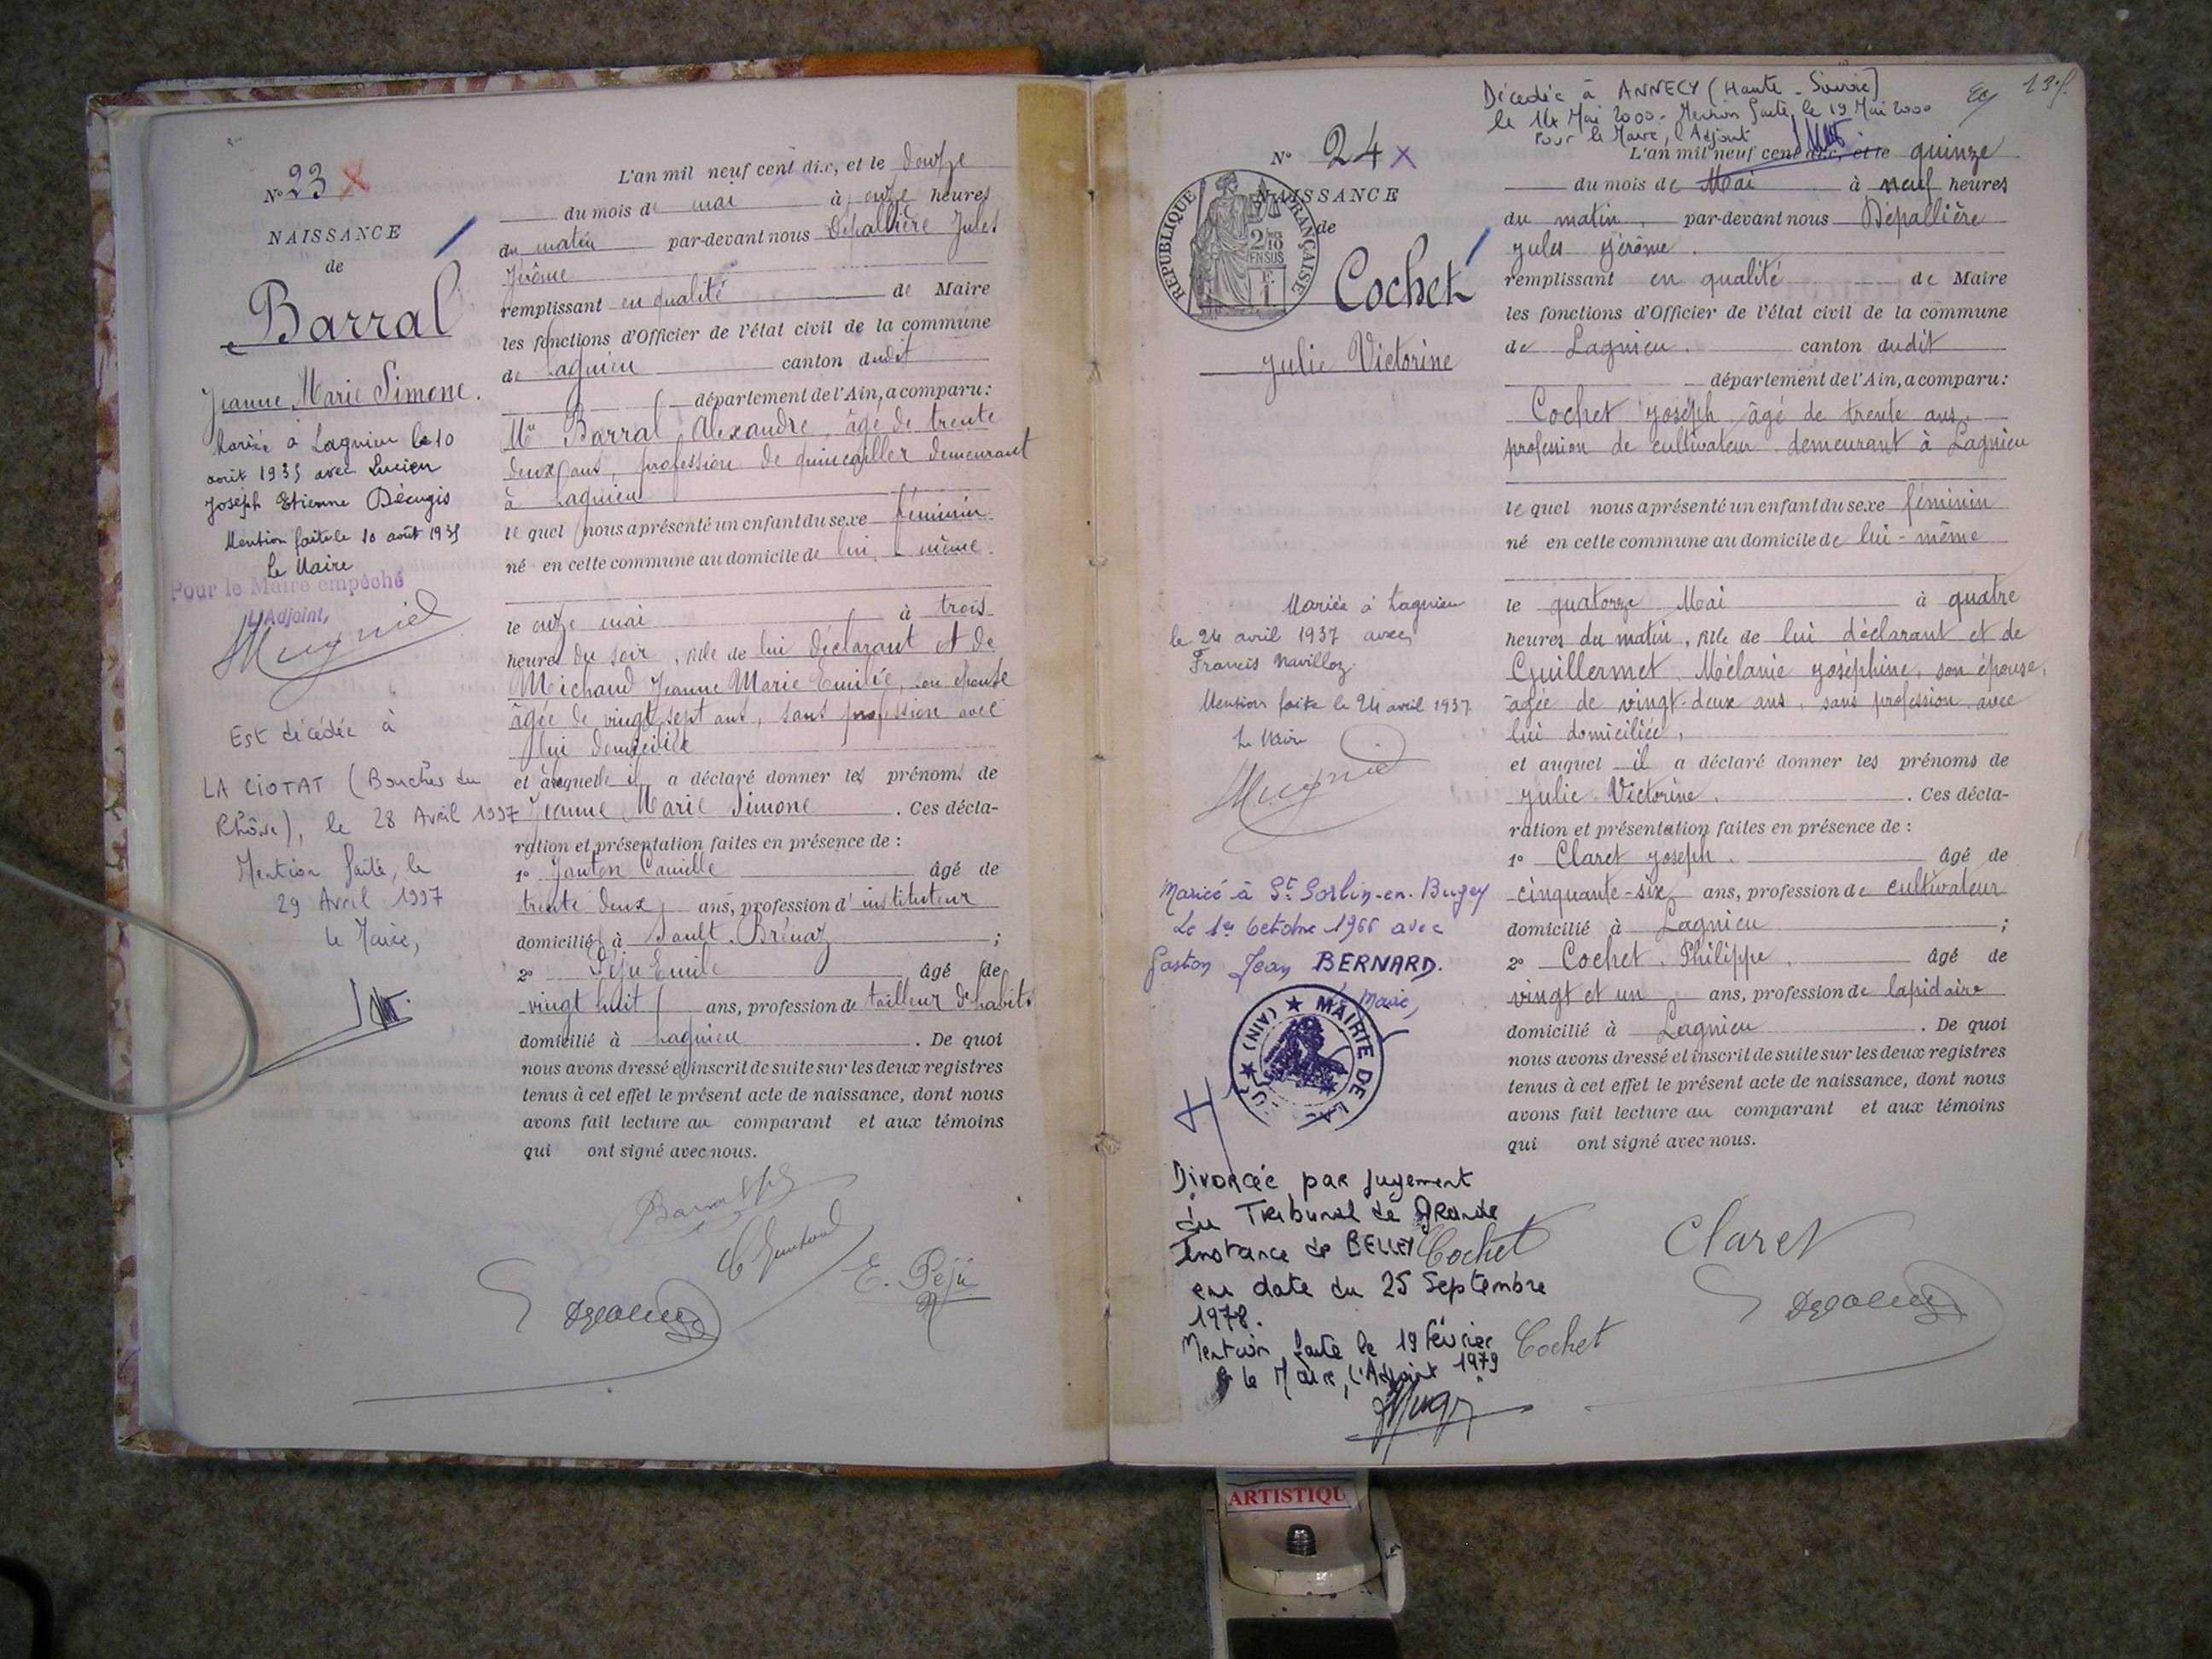 N° 23 X
NAISSANCE
de
Barral
Jeanne Marie Simone.
Mariée à Lagnieu le 10
août 1935 avec Lucien
Joseph Etienne Décugis
Mention faite le 10 août 1935
Le Maire
Pour le Maire empêché
L'Adjoint,
Est décédée à
LA CIOTAT (Bouches du
Rhône), le 28 Avril 1997
Mention faite, le
29 Avril 1997
le Maire,
L'an mil neuf cent dix, et le douze
du mois de mai à onze heures
du matin par-devant nous Dépallière Jules
Jérôme
remplissant en qualité de Maire
les fonctions d'Officier de l'état civil de la commune
de Lagnieu canton dudit
département de l'Ain, a comparu:
Mr Barral Alexandre, âgé de trente
deux ans, profession de quincailler demeurant
à Lagnieu
le quel nous a présenté un enfant du sexe féminin
né en cette commune au domicile de lui même.
le onze mai à trois
heures du soir, fille de lui déclarant et de
Michaud Jeanne Marie Emilie, son épouse
âgée de vingt sept ans, sans profession avec
lui domiciliée
et à laquelle il a déclaré donner les prénoms de
Jeanne Marie Simone . Ces décla-
ration et présentation faites en présence de :
1° Camille âgé de
trente deux ans, profession d'instituteur
domicilié à Sault-Brénaz ;
2° Péju Emile âgé de
vingt huit ans, profession de tailleur d'habits
domicilié à Lagnieu . De quoi
nous avons dressé et inscrit de suite sur les deux registres
tenus à cet effet le présent acte de naissance, dont nous
avons fait lecture au comparant et aux témoins
qui ont signé avec nous.
E. Péju
Décédée à ANNECY (Haute-Savoie)
le 14 Mai 2000. Mention faite, le 19 Mai 2000
Pour le Maire, l'Adjoint
N° 24 X
NAISSANCE
de
RÉPUBLIQUE FRANÇAISE
2/10 EN SUS
F.
1
Cochet
Julie Victorine
Mariée à Lagnieu
le 24 avril 1937 avec
Francis Navilloz.
Mention faite le 24 avril 1937
Le Maire
Mariée à St Sorlin-en-Bugey
Le 1er Octobre 1966 avec
Gaston Jean BERNARD.
Le Maire,
MAIRIE DE LAGNIEU (AIN)
Divorcée par jugement
du Tribunal de Grande
Instance de BELLEY
en date du 25 Septembre
1978.
Mention faite le 19 février
1979
le Maire, l'Adjoint
L'an mil neuf cent dix, et le quinze
du mois de Mai à neuf heures
du matin, par-devant nous Dépallière
Jules Jérôme.
remplissant en qualité de Maire
les fonctions d'Officier de l'état civil de la commune
de Lagnieu. canton dudit
département de l'Ain, a comparu:
Cochet Joseph, âgé de trente ans,
profession de cultivateur demeurant à Lagnieu
le quel nous a présenté un enfant du sexe féminin
né en cette commune au domicile de lui-même
le quatorze Mai à quatre
heures du matin, fille de lui déclarant et de
Guillermet Mélanie Joséphine, son épouse,
âgée de vingt-deux ans, sans profession, avec
lui domiciliée,
et auquel il a déclaré donner les prénoms de
Julie Victorine. . Ces décla-
ration et présentation faites en présence de :
1° Claret Joseph. âgé de
cinquante-six ans, profession de cultivateur
domicilié à Lagnieu ;
2° Cochet, Philippe, âgé de
vingt et un ans, profession de lapidaire
domicilié à Lagnieu . De quoi
nous avons dressé et inscrit de suite sur les deux registres
tenus à cet effet le présent acte de naissance, dont nous
avons fait lecture au comparant et aux témoins
qui ont signé avec nous.
Claret
Cochet
Cochet
ARTISTIQU